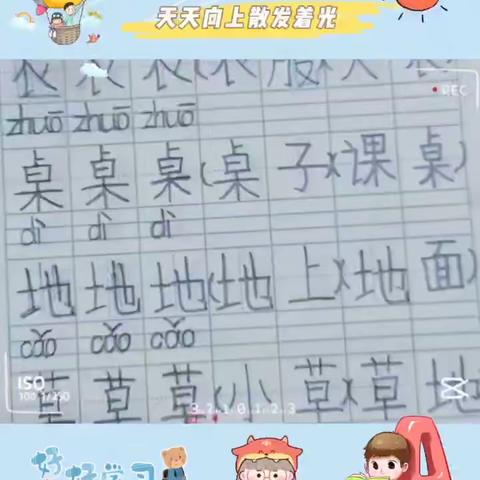 天天向上散发着光
衣 衣 衣(衣 服)(大 衣)
REC
zhuō zhuō zhuō
桌 桌 桌(桌 子)(课 桌)
dì dì dì
地 地 地(地 上)(地 面)
cǎo cǎo cǎo
ISO
草 草 草(小 草)(草 地
3 2 1 0 1 2 3
好好学习